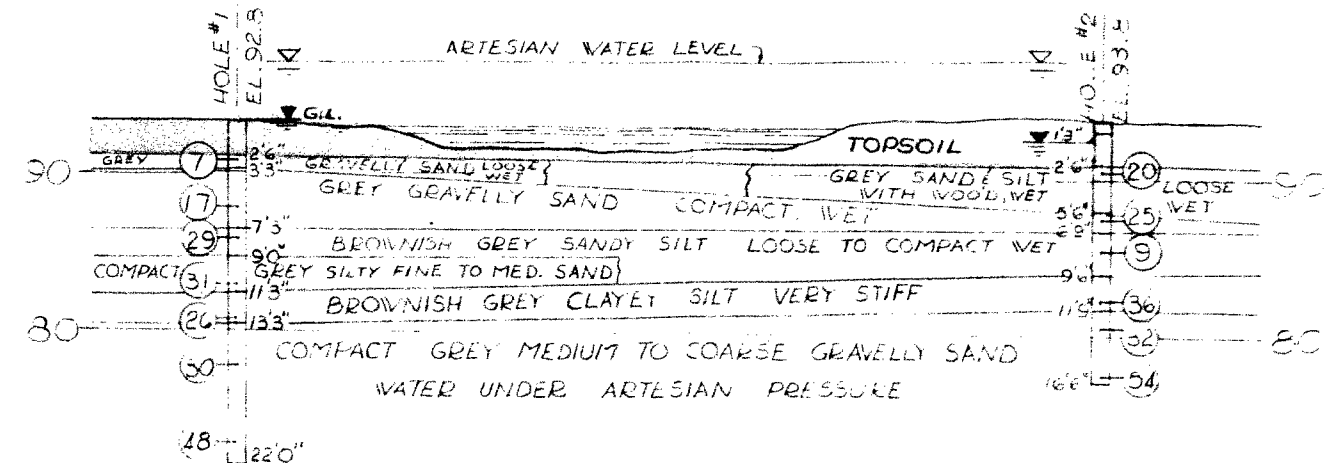 HOLE #1
EL. 92.8
ARTESIAN WATER LEVEL
HO..E #2
EL. 93.8
G.L.
1'3"
TOPSOIL
GREY
7
2'6"
3'3"
GRAVELLY SAND LOOSE WET
GREY SAND & SILT
WITH WOOD, WET
2'6"
20
LOOSE
WET
90
90
GREY GRAVELLY SAND COMPACT, WET
17
5'6"
25
7'3"
29
BROWNISH GREY SANDY SILT LOOSE TO COMPACT WET
9
9'0"
COMPACT
31
GREY SILTY FINE TO MED. SAND
9'6"
11'3"
BROWNISH GREY CLAYEY SILT VERY STIFF
36
26
13'3"
80
80
COMPACT GREY MEDIUM TO COARSE GRAVELLY SAND
WATER UNDER ARTESIAN PRESSURE
16'6"
54
48
22'0"